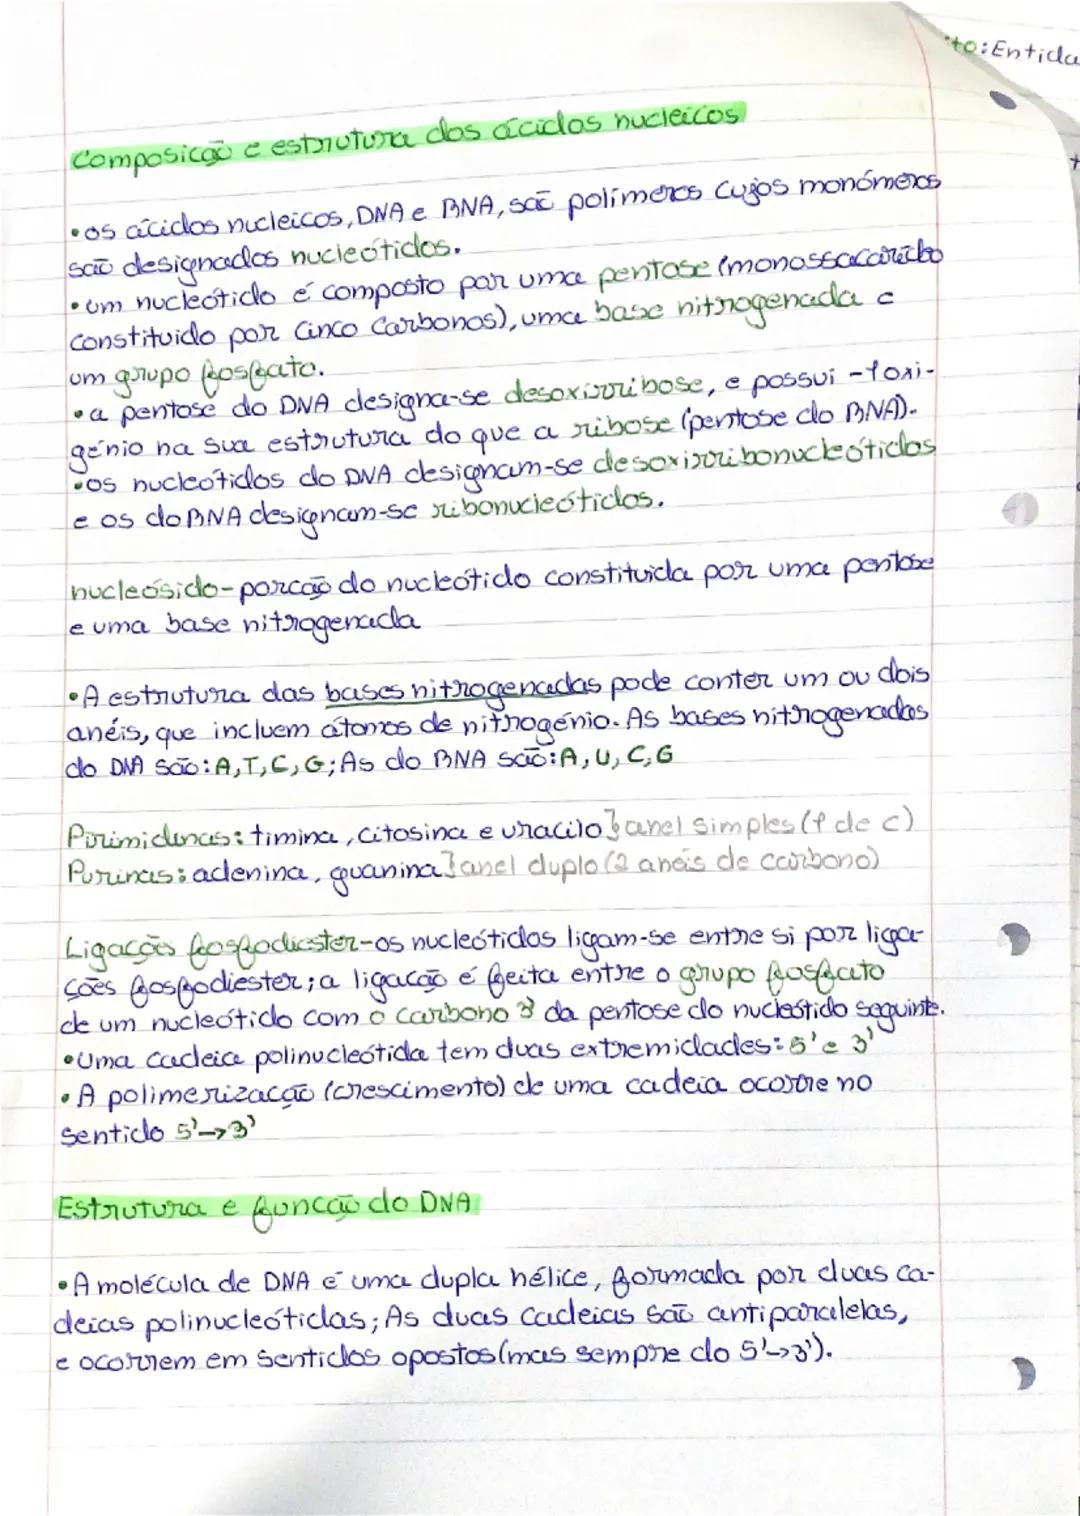 to: Entida
Composição e estrutura dos ácidos nucleicos
• os ácidos nucleicos, DNA e RNA, são polímeros cujos monómeros
são designados nucleótidos.
• um nucleótido é composto por uma pentose (monossacarído
constituido por cinco carbonos), uma base nitrogenada e
um grupo fosfato.
• a pentose do DNA designa-se desoxirribose, e possui -1 oxi-
génio na sua estrutura do que a ribose (pentose do RNA).
• os nucleótidos do DNA designam-se desoxirribonucleótidos
e os do RNA designam-se ribonucleótidos.
nucleósido - porção do nucleótido constituida por uma pentose
e uma base nitrogenada
• A estrutura das bases nitrogenadas pode conter um ou dois
anéis, que incluem átomos de nitrogénio. As bases nitrogenadas
do DNA são: A, T, C, G; As do RNA são: A, U, C, G
Pirimidinas: timina, citosina e uracilo } anel simples (1 de c)
Purinas: adenina, guanina } anel duplo (2 aneis de carbono)
Ligações fosfodiester - os nucleótidos ligam-se entre si por liga-
ções fosfodiester; a ligação é feita entre o grupo fosfato
de um nucleótido com o carbono 3' da pentose do nucleótido seguinte.
• Uma cadeia polinucleótida tem duas extremidades: 5' e 3'
• A polimerização (crescimento) de uma cadeia ocorre no
sentido 5'→3'
Estrutura e função do DNA
• A molécula de DNA é uma dupla hélice, formada por duas ca-
deias polinucleótidas; As duas cadeias são antiparalelas,
e ocorrem em sentidos opostos (mas sempre do 5'→3').